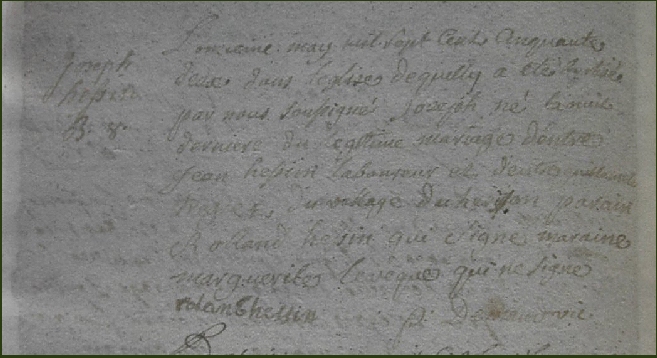 Joseph
hessin
B. &.
L'onzieme may mil sept Cent Cinquante
deux dans l'eglise dequilly a eté batisé
par nous soussigné Joseph né la nuit
derniere du legitime mariage d'entre
Jean hessin laboureur et d'entre
du village du parain
Rolland hesin qui signe maraine
marguerite leveque qui ne signe
rolanshessin